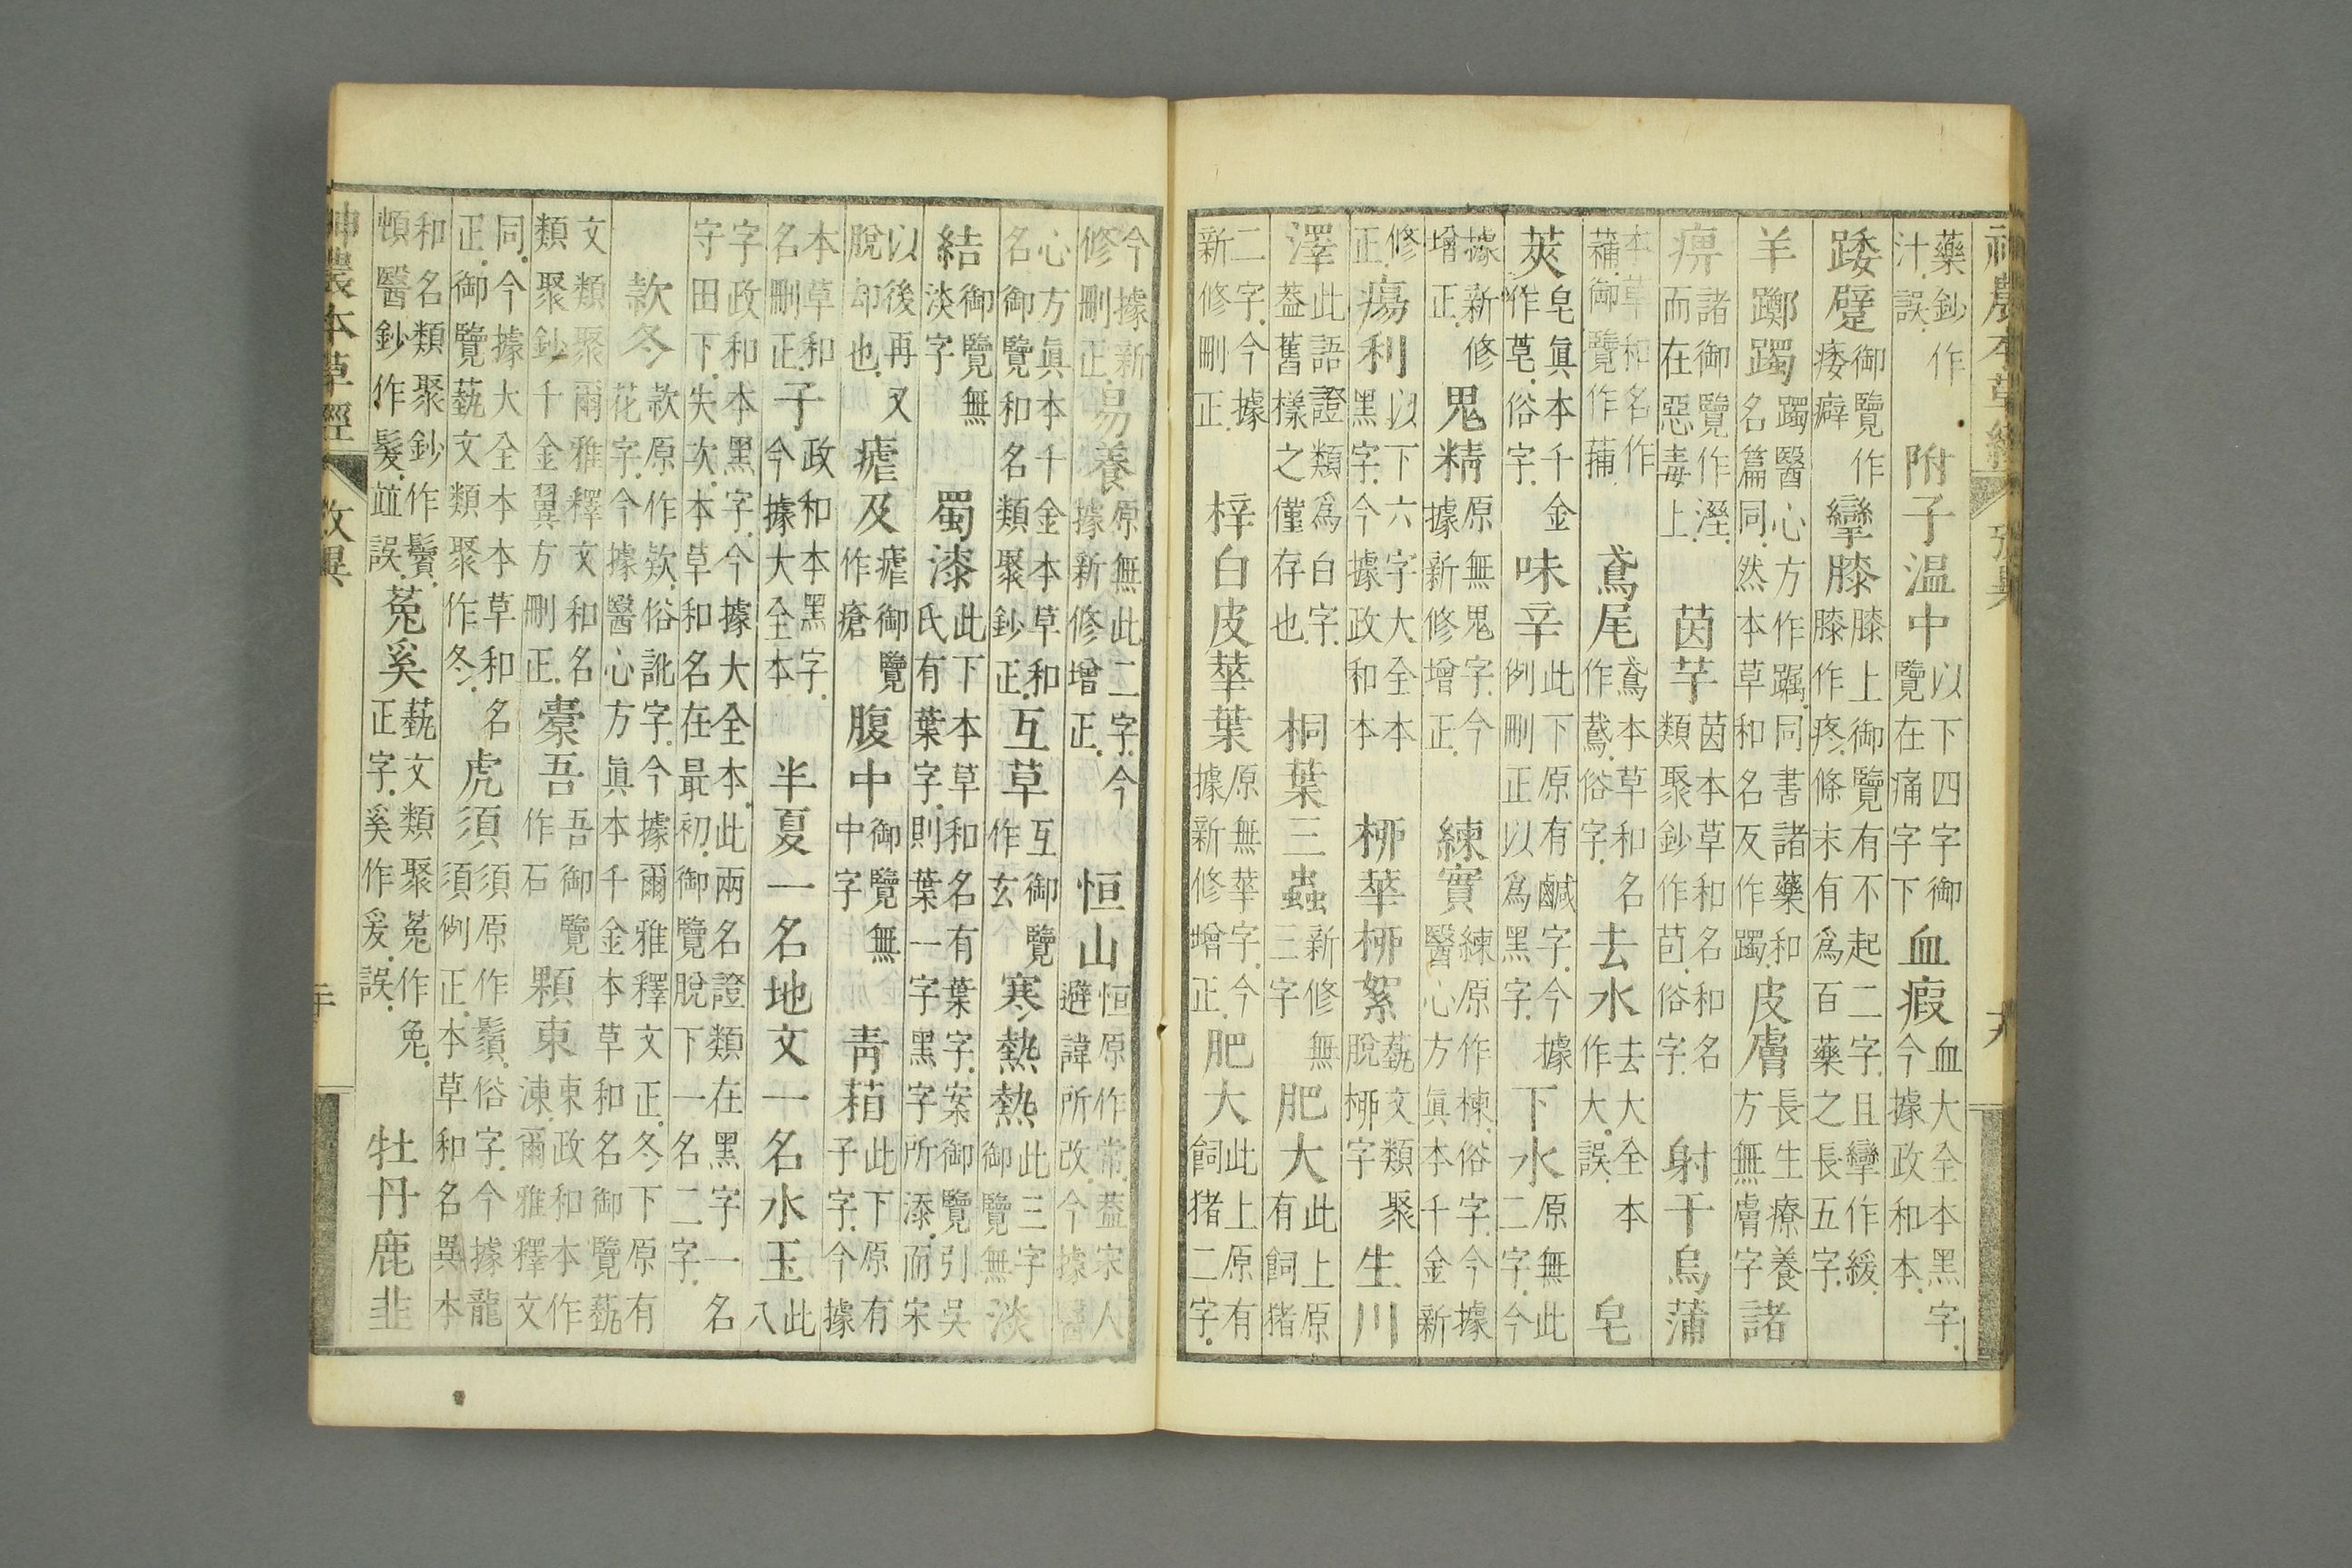 神農本草經 攷異 十九
藥鈔作汁誤 附子溫中以下四字御覽在痛字下血瘕血大全本黑字今據政和本
踒躄御覽作痿癖攣膝膝上御覽有不起二字且攣作緩膝作疼條末有爲百藥之長五字
羊躑躅躅醫心方作躅同書諸藥和名篇同然本草和名反作躅皮膚長生療養方無膚字諸
痹諸御覽作溼而在惡毒上 茵芋茵本草和名和名類聚鈔作俗字 射干烏蒲
本草和名作御覽作蒱 鳶尾鳶本草和名作鷰俗字去水去大全本作大誤 皂
莢皂眞本千金作草俗字味辛此下原有鹹字今據例刪正以爲黑字下水原無此二字今
據新修增正鬼精原無鬼字今據新修增正 練實練原作楝俗字今據醫心方眞本千金新
修正瘍利以下六字大全本黑字今據政和本 桺華桺絮藝文類聚脫桺字生川
澤此語證類爲白字葢舊樣之僅存也 桐葉三蟲新修無三字肥大此上原有飼猪
二字今據新修刪正 梓白皮華葉原無華字今據新修增正肥大此上原有飼猪二字
今據新修刪正易養原無此二字今據新修增正 恒山恒原作常葢宋人避諱所改今據醫
心方眞本千金本草和名御覽和名類聚鈔正互草互御覽作玄寒熱熱此三字御覽無淡
結御覽無淡字 蜀漆此下本草和名有葉字案御覽引吳氏有葉字則葉一字黑字所添而宋
以後再又脫却也瘧及瘧御覽作瘡腹中御覽無中字 青葙此下原有子字今據
本草和名刪正子政和本黑字今據大全本 半夏一名地文一名水玉此八
字政和本黑字今據大全本此兩名證類在黑字一名守田下失次本草和名在最初御覽脫下一名二字
款冬款原作欵俗訛字今據爾雅釋文正冬下原有花字今據醫心方眞本千金本草和名御覽藝
文類聚爾雅釋文和名類聚鈔千金翼方刪正橐吾吾御覽作石顆東東政和本作涷爾雅釋文
同今據大全本本草和名正御覽藝文類聚作冬虎須須原作鬚俗字今據龍須例正本草和名異本
和名類聚鈔作鬢頓醫鈔作髮竝誤菟奚藝文類聚菟作免正字奚作爰誤 牡丹鹿韭
神農本草經 攷異 二十